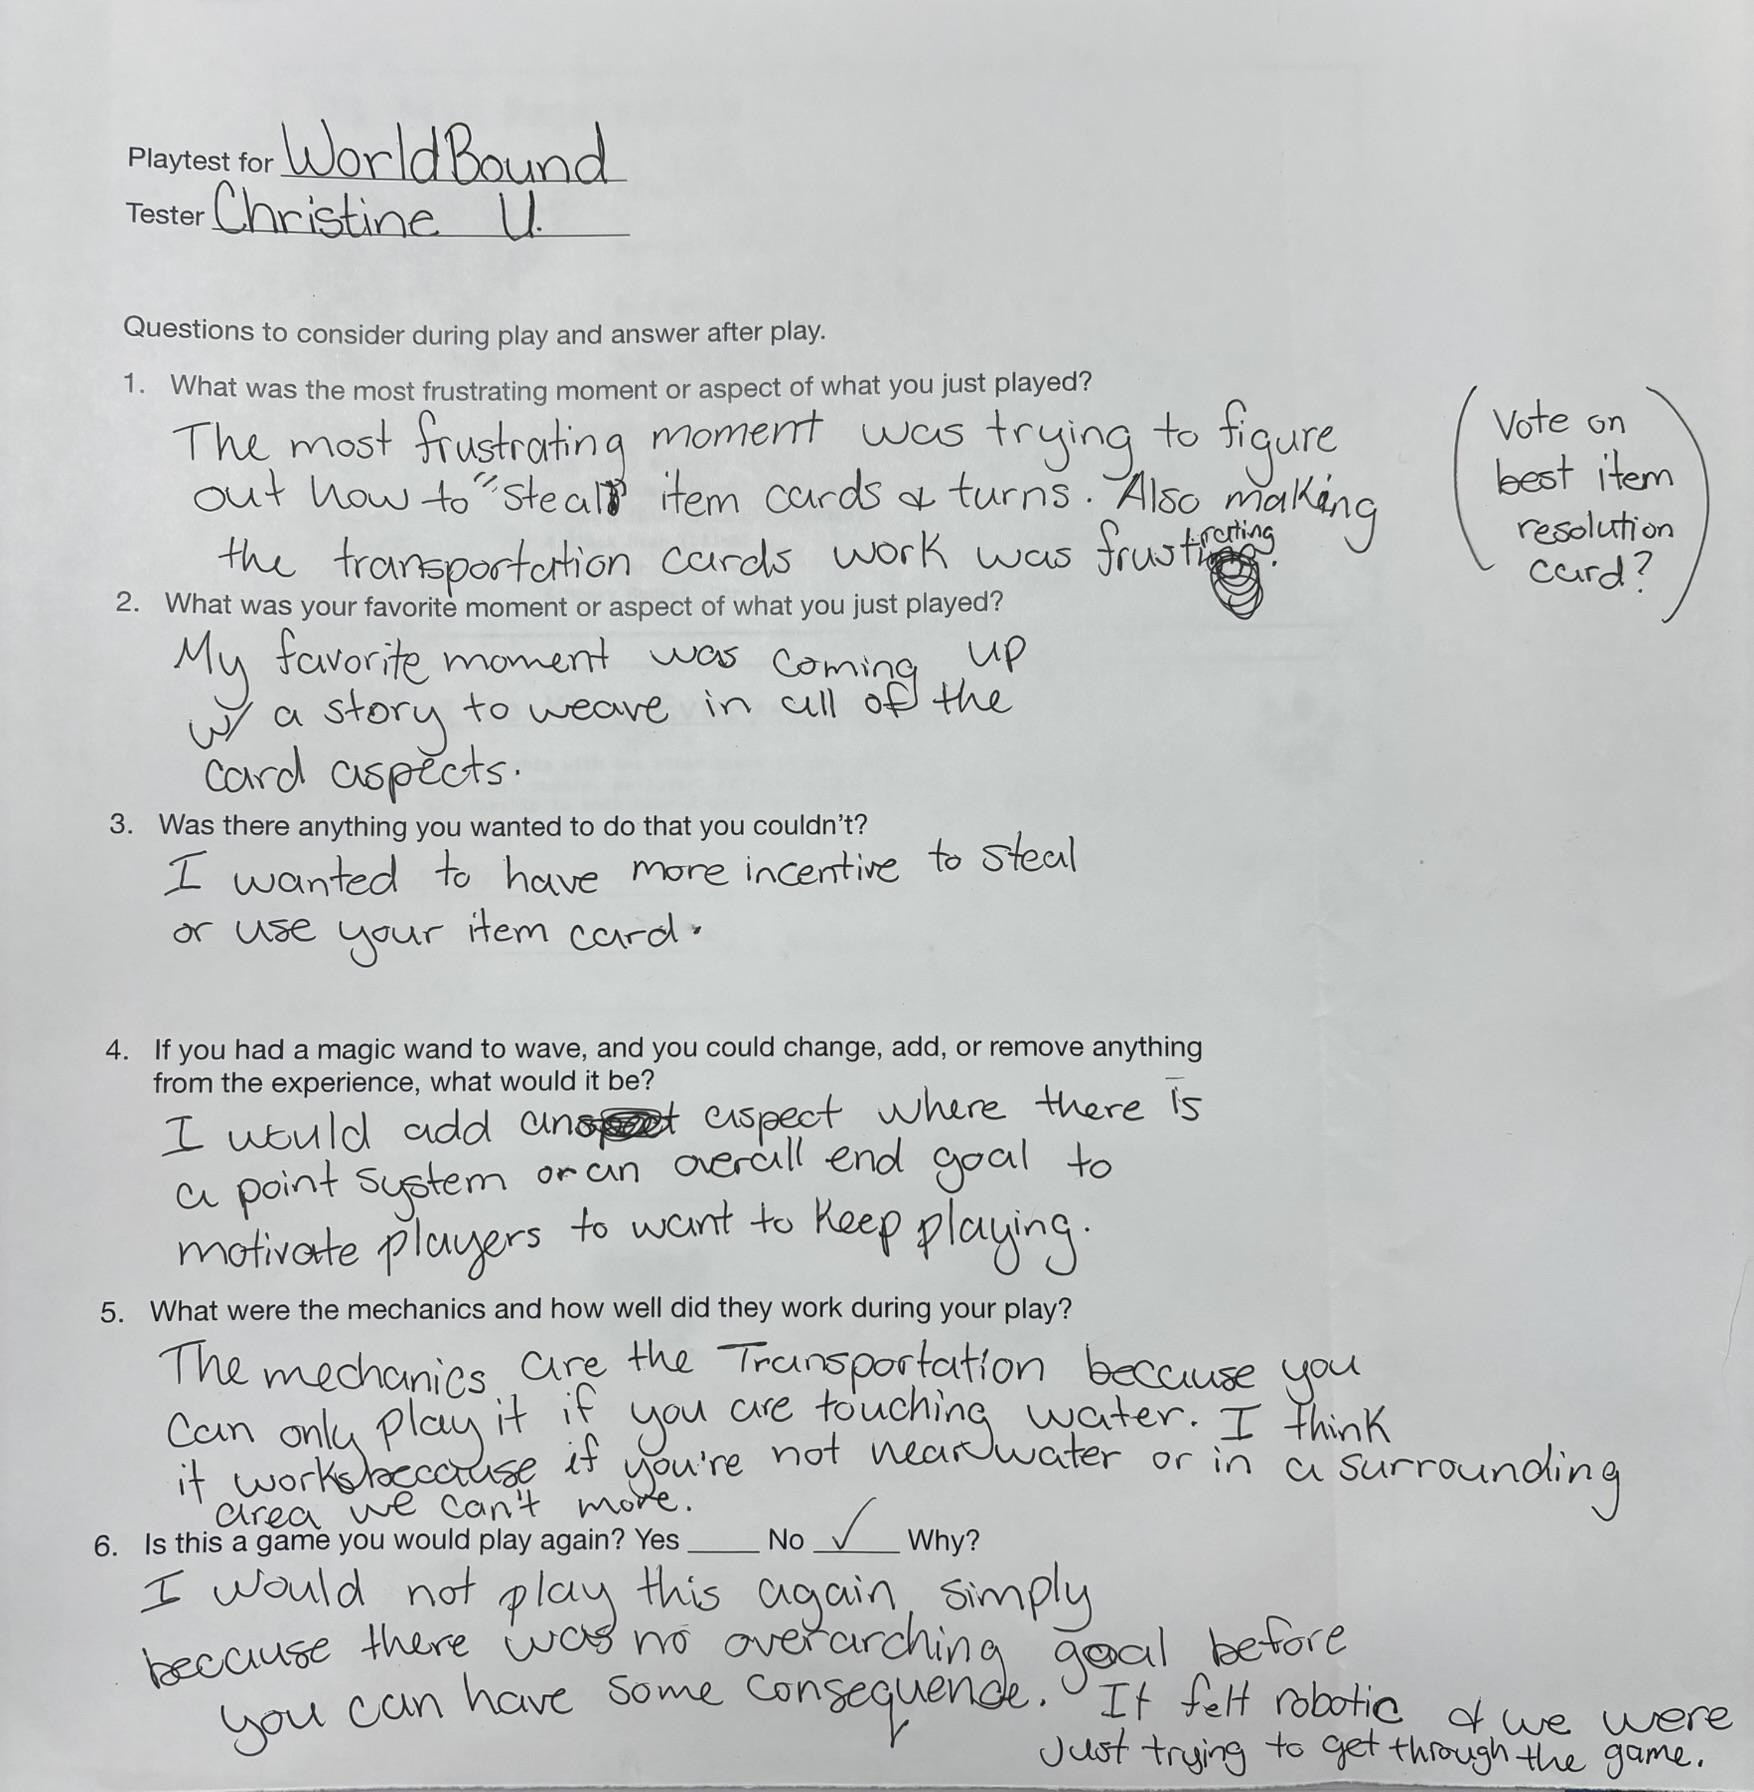 Playtest for WorldBound
Tester Christine U.
Questions to consider during play and answer after play.
1. What was the most frustrating moment or aspect of what you just played?
The most frustrating moment was trying to figure
out how to "steal" item cards & turns. Also making
the transportation cards work was frustrating.
(Vote on
best item
resolution
card?)
2. What was your favorite moment or aspect of what you just played?
My favorite moment was coming up
w/ a story to weave in all of the
card aspects.
3. Was there anything you wanted to do that you couldn't?
I wanted to have more incentive to steal
or use your item card.
4. If you had a magic wand to wave, and you could change, add, or remove anything
from the experience, what would it be?
I would add an aspect where there is
a point system or an overall end goal to
motivate players to want to keep playing.
5. What were the mechanics and how well did they work during your play?
The mechanics are the Transportation because you
can only play it if you are touching water. I think
it works because if you're not near water or in a surrounding
area we can't move.
6. Is this a game you would play again? Yes ____ No ✓ Why?
I would not play this again, simply
because there was no overarching goal before
you can have some consequence. It felt robotic & we were
just trying to get through the game.